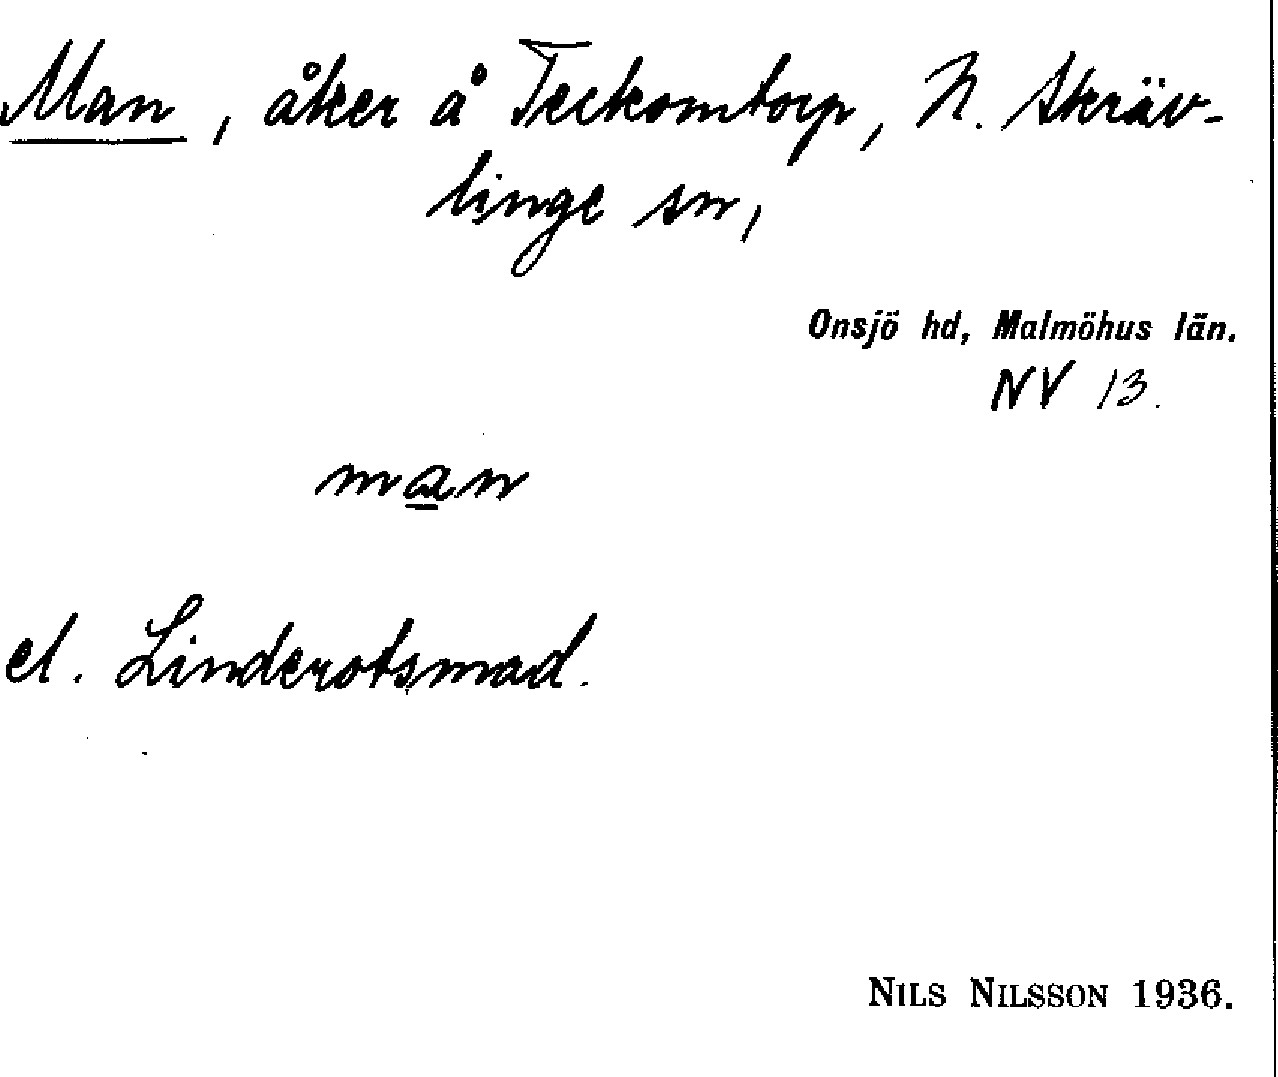 Man, åker å Teckomtorp, N. Skräv-
linge sn,
Onsjö hd, Malmöhus län.
NV 13.
man
el. Linderotsmad.
NILS NILSSON 1936.